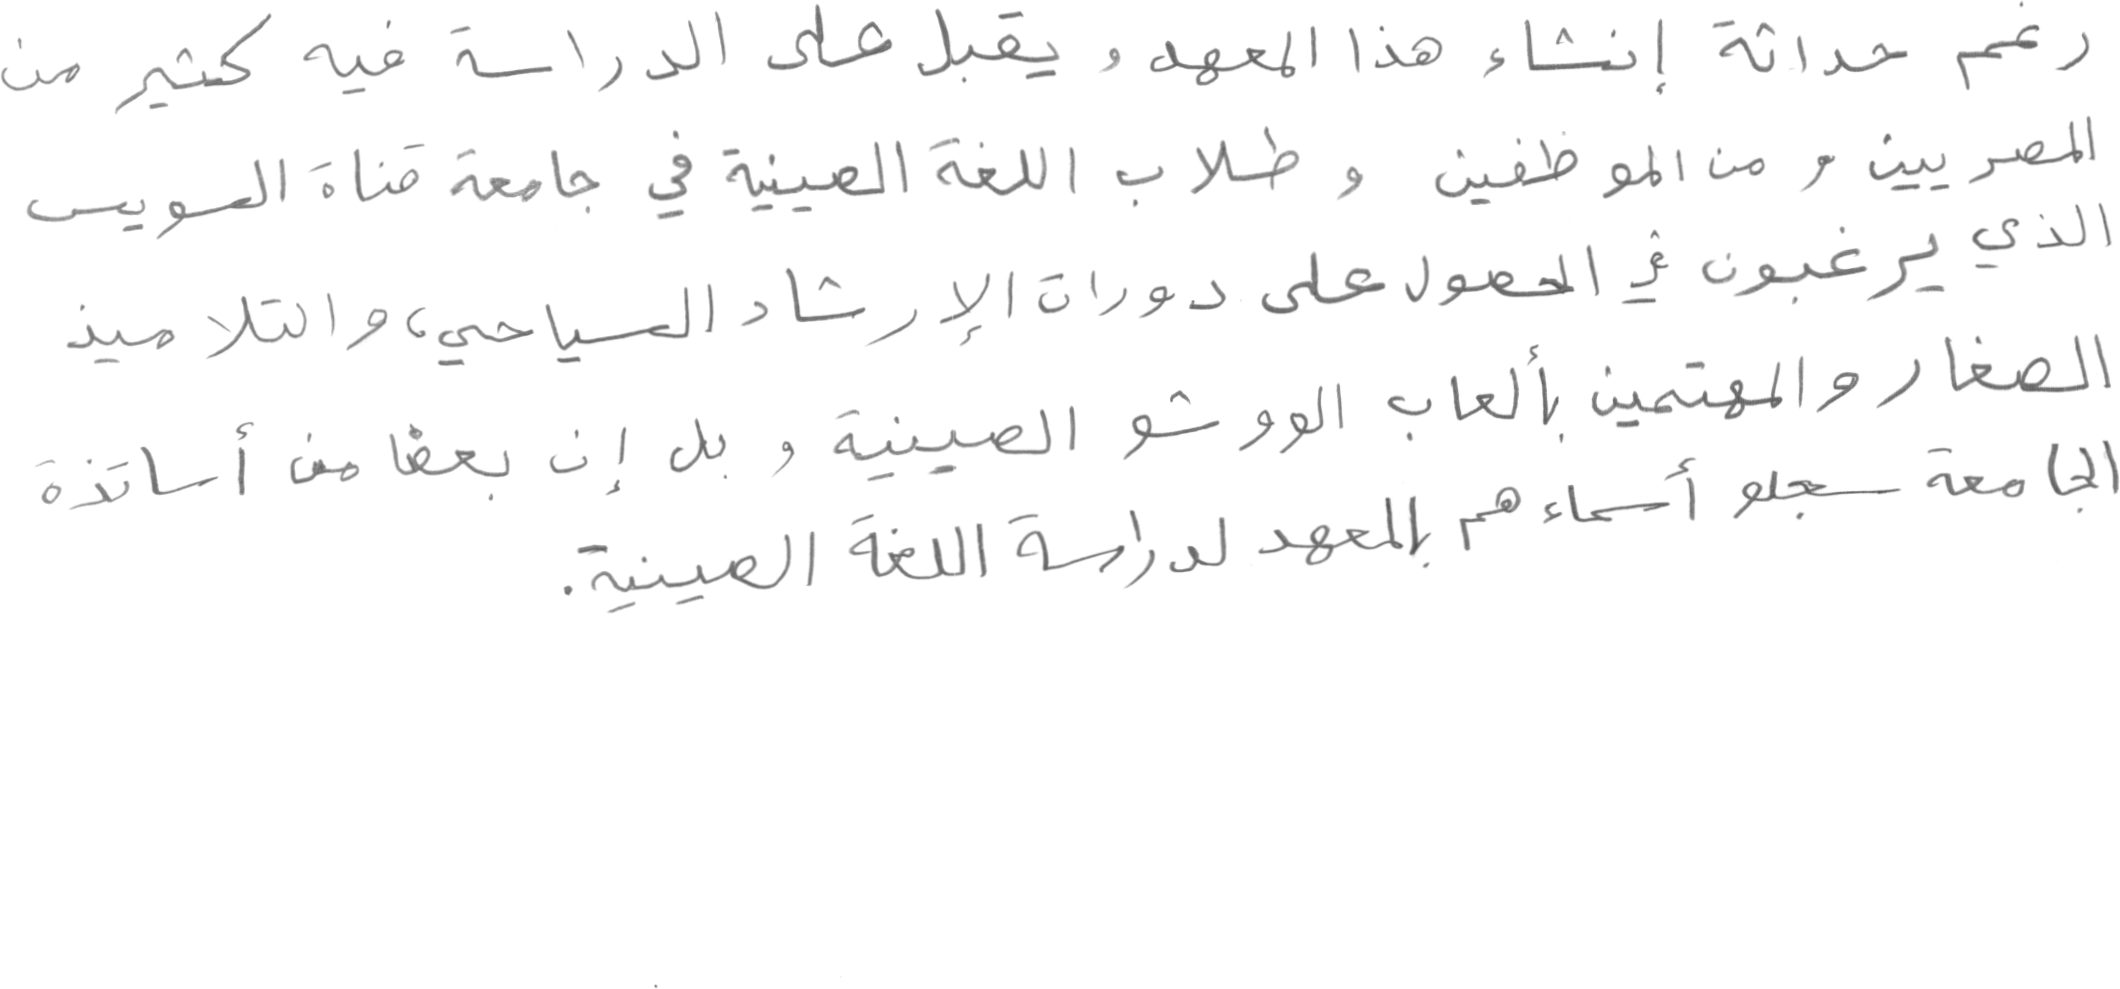 رغم حداثة إنشاء هذا المعهد، يقبل على الدراسة فيه كثير من
المصريين، من الموظفين، وطلاب اللغة الصينية في جامعة قناة السويس
الذي يرغبون في الحصول على دورات الإرشاد السياحي، والتلاميذ
الصغار والمهتمين بألعاب الووشو الصينية، بل إن بعضا من أساتذة
الجامعة سجلو أسماءهم بالمعهد لدراسة اللغة الصينية.